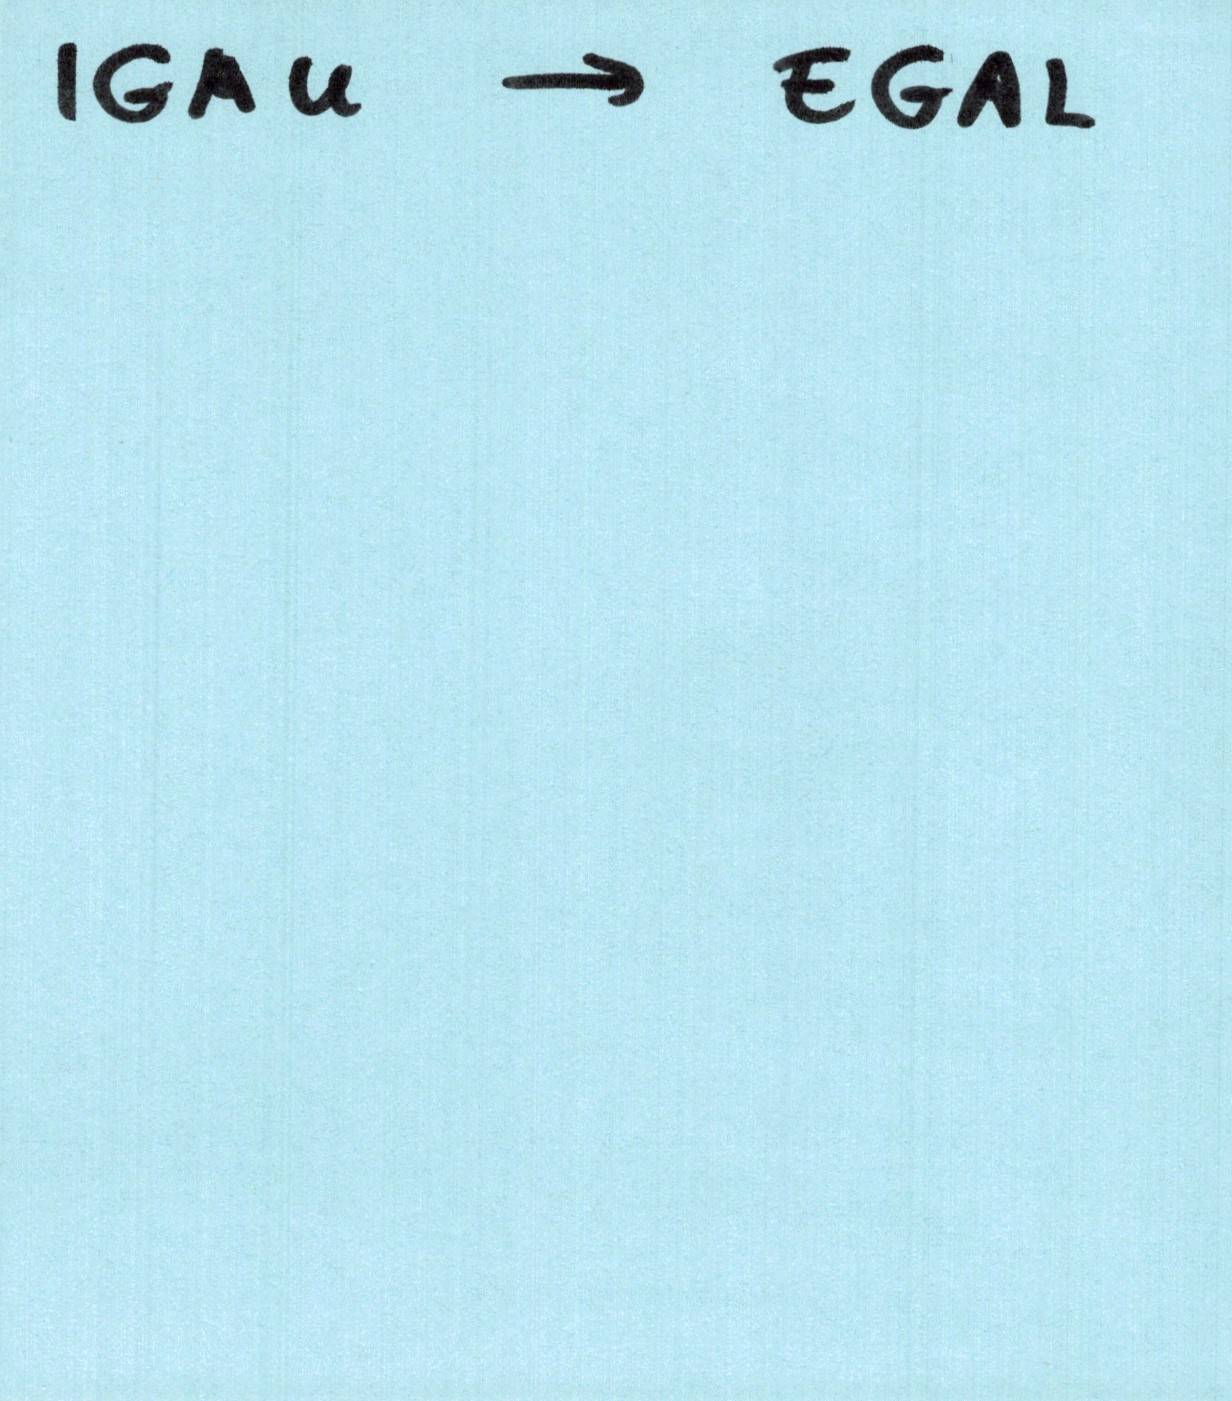 IGAU → EGAL